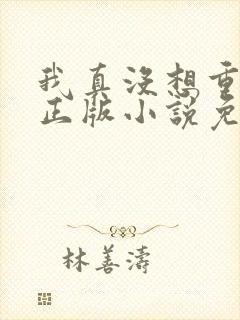 我真没想重
正版小說免
林善濤